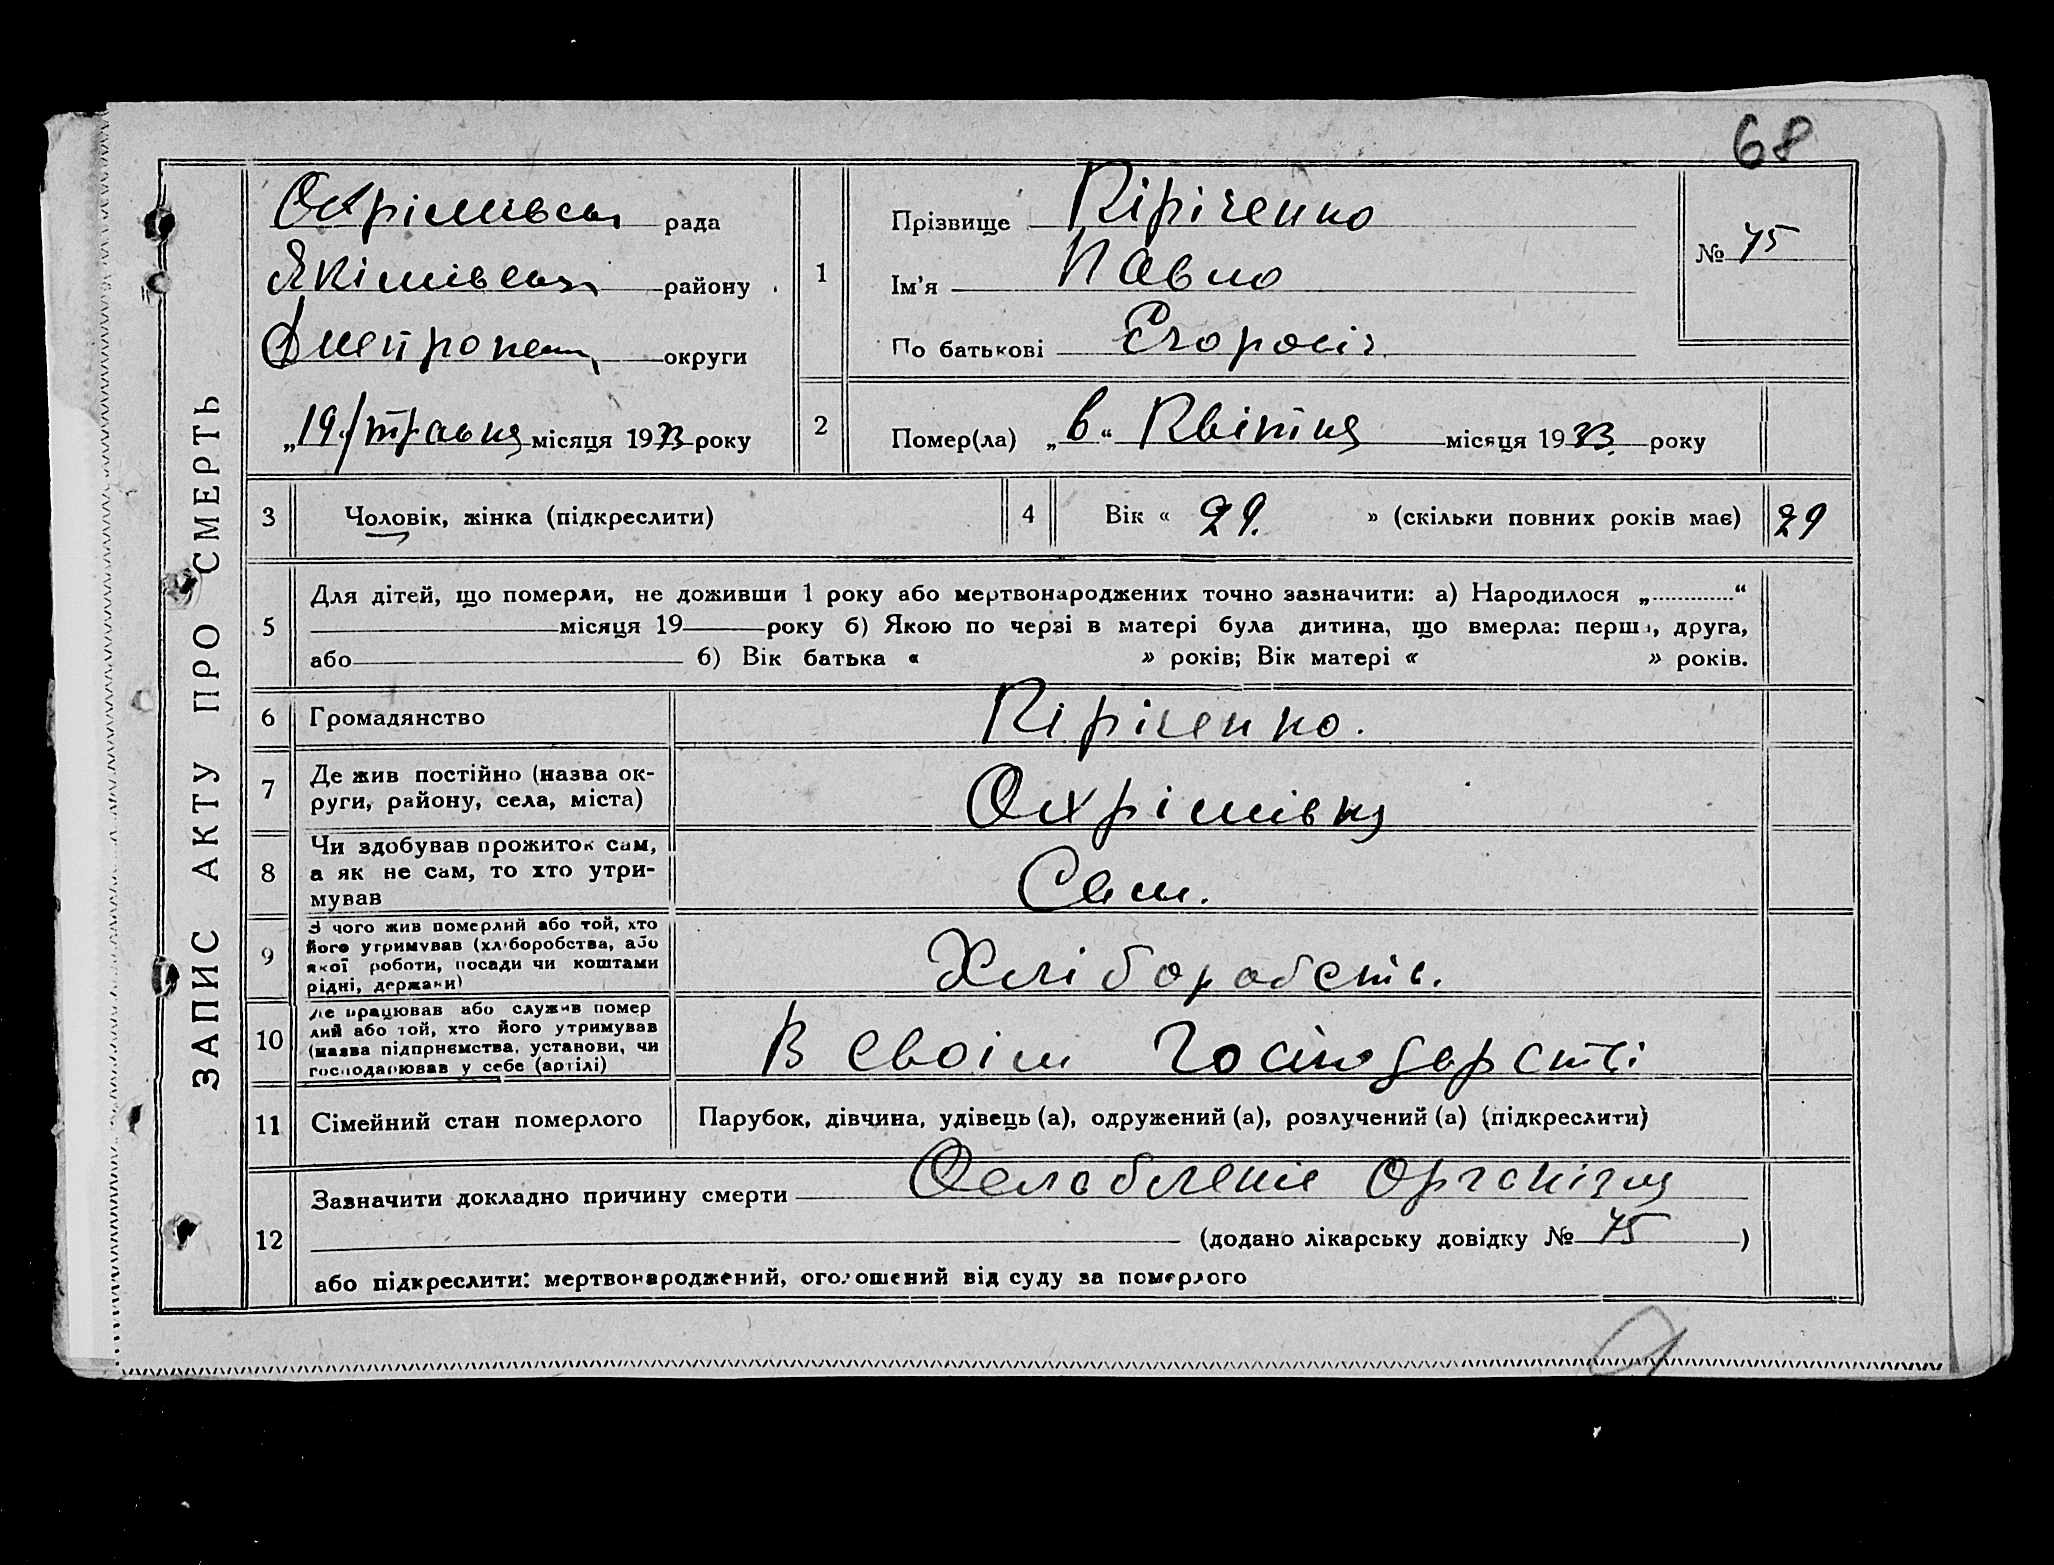 68
ЗАПИС АКТУ ПРО СМЕРТЬ
Охрімівська рада
Якімівська району
Днепропет округи
„19/травня місяця 1933 року
1
Прізвище Кіріченко
Ім'я Павло
По батькові Єгоровіч
№ 75
2
Помер(ла) „6“ Квітня місяця 1933 року
3 Чоловік, жінка (підкреслити)
4 Вік « 29. » (скільки повних років має) 29
5
Для дітей, що померли, не доживши 1 року або мертвонароджених точно зазначити: а) Народилося „.............“
місяця 19 року б) Якою по черзі в матері була дитина, що вмерла: перша, друга,
або б) Вік батька « » років; Вік матері « » років.
6 Громадянство Кіріченко.
7
Де жив постійно (назва ок-
руги, району, села, міста)
Охрімівка
8
Чи здобував прожиток сам,
а як не сам, то хто утри-
мував
Сам.
9
З чого жив померлий або той, хто
його утримував (хліборобства, або
якої роботи, посади чи коштами
рідні, держави)
Хліборобств.
10
Де працював або служив помер
лий або той, хто його утримував
(назва підпрнємства, установи, чи
господарював у себе (артілі)
В своім Господарстві
11 Сімейний стан померлого Парубок, дівчина, удівець (а), одружений (а), розлучений (а) (підкреслити)
12
Зазначити докладно причину смерти Ослабленіе Організма
(додано лікарську довідку № 75 )
або підкреслити: мертвонароджений, оголошений від суду за померлого